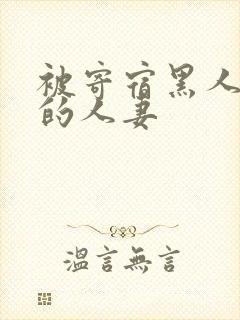 被寄宿黑人
的人妻
溫言無言